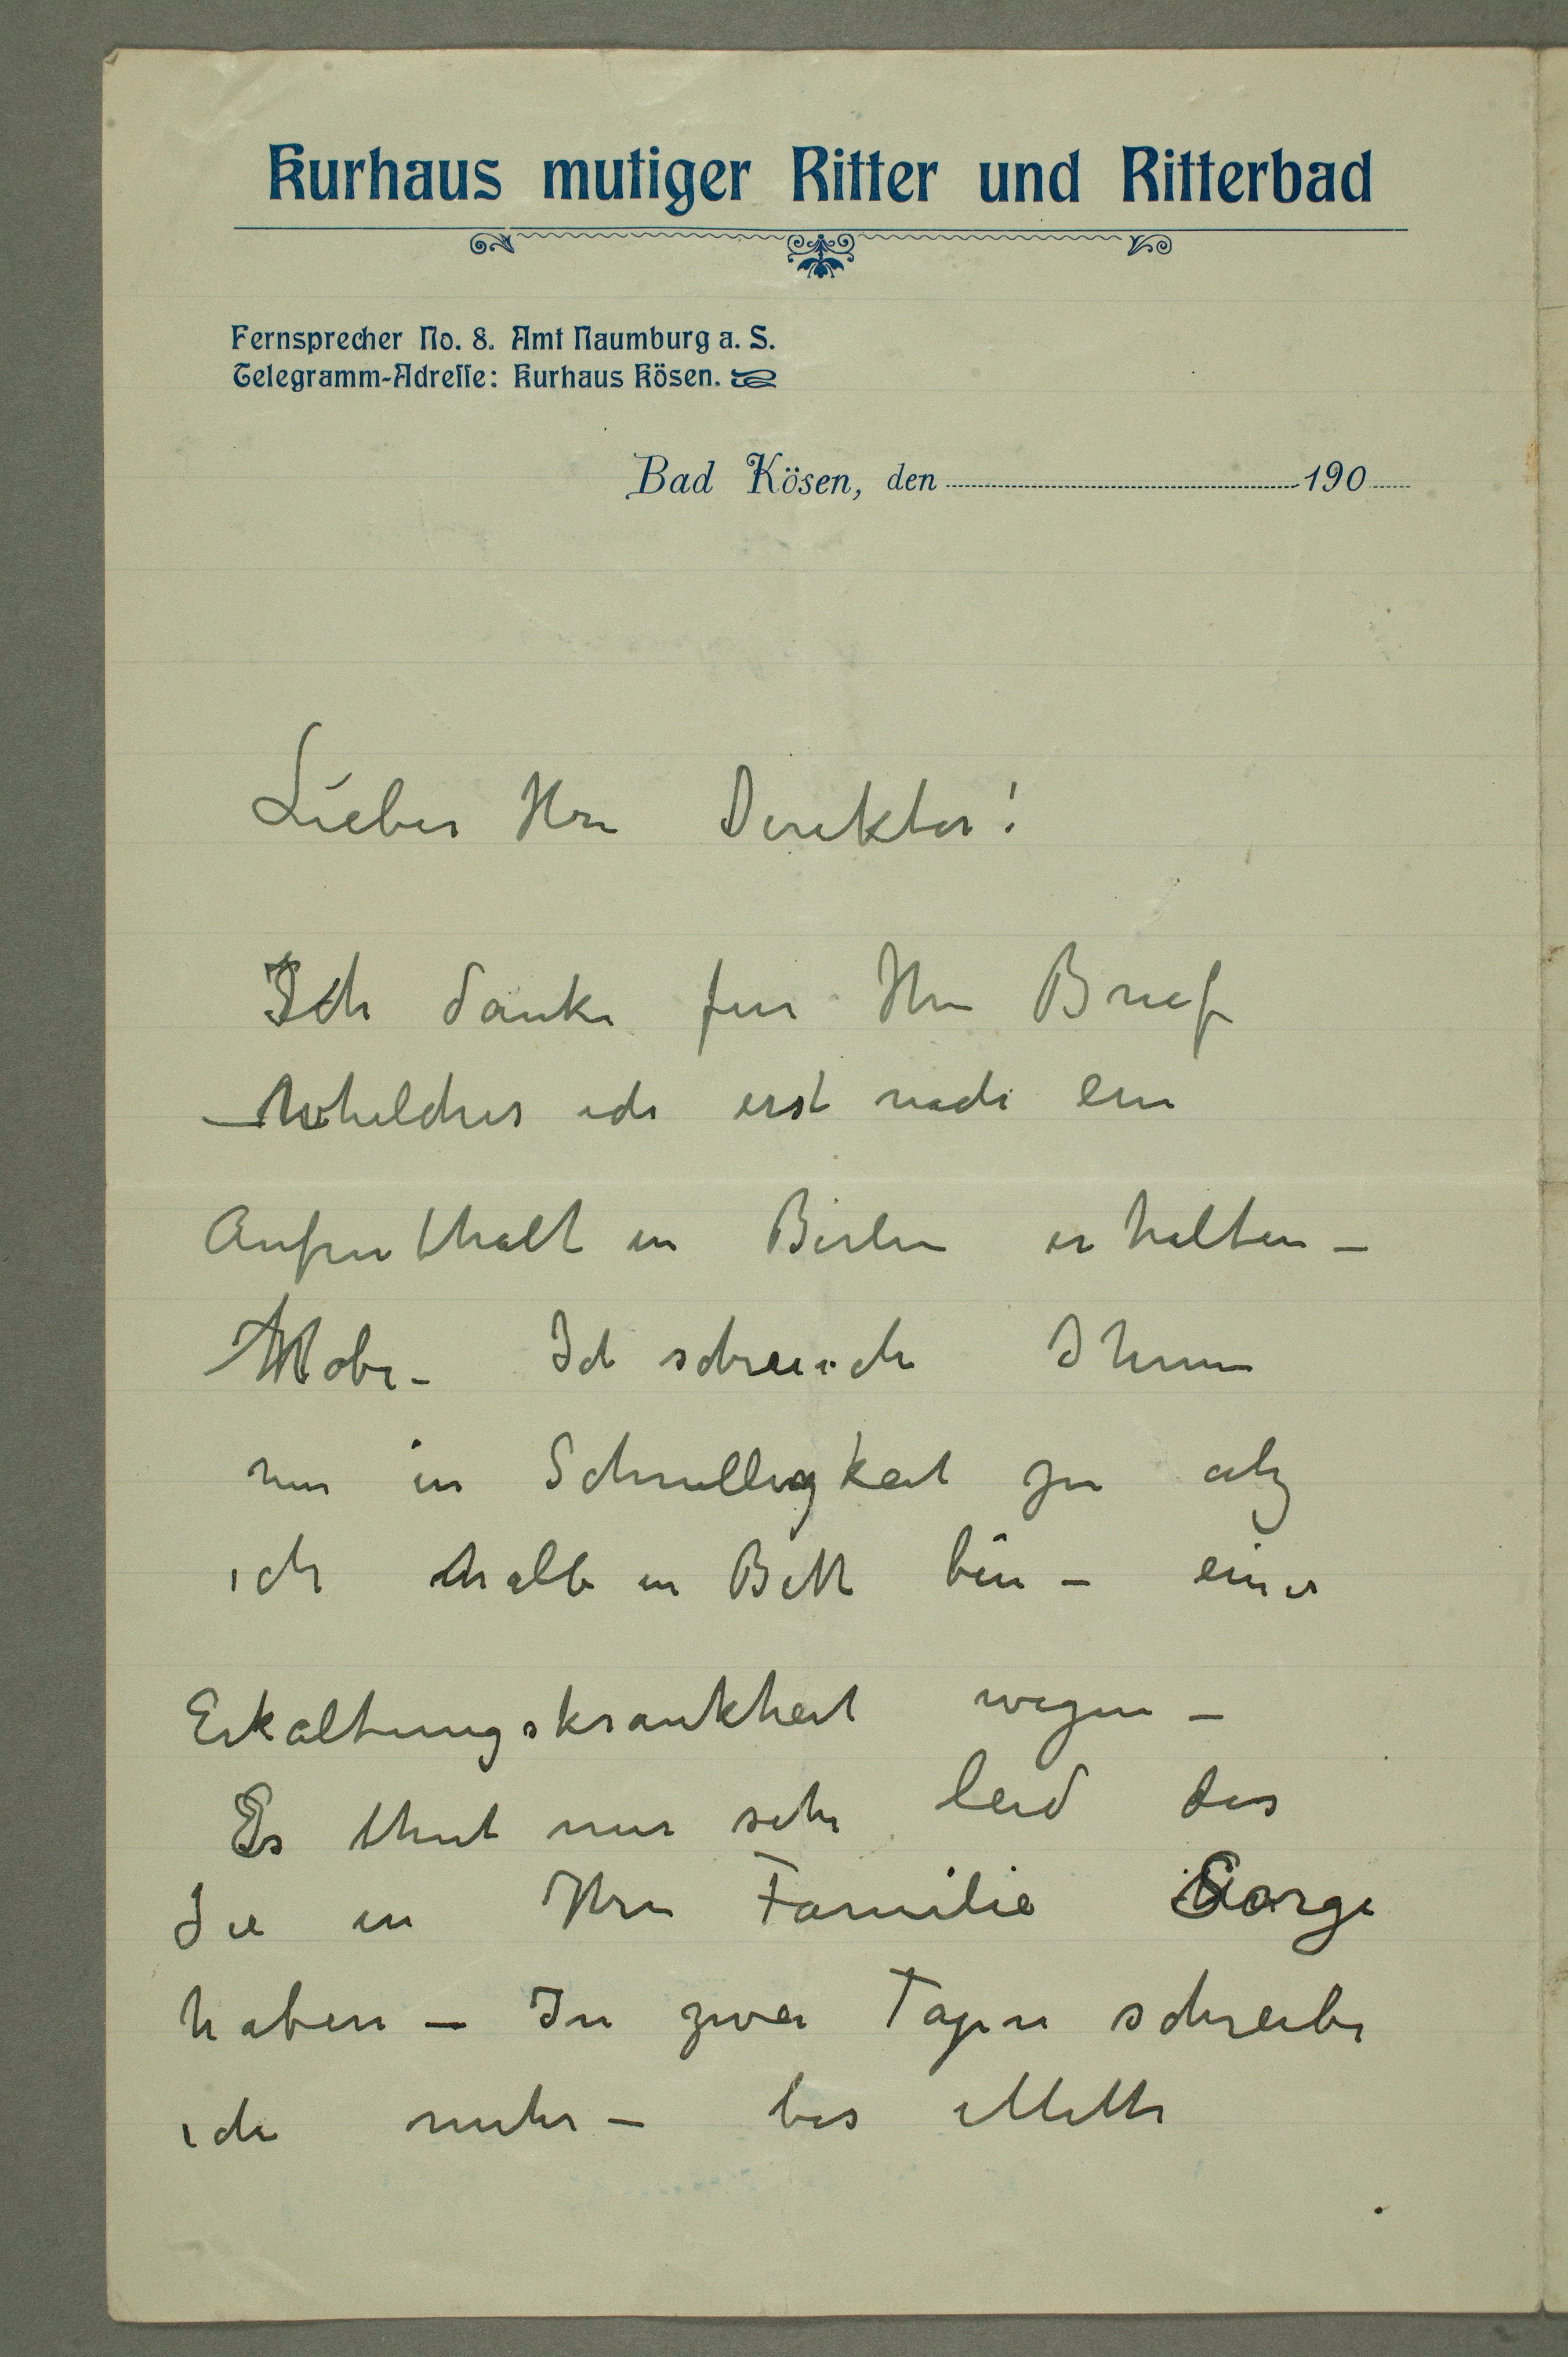 Kurhaus mutiger Ritter und Ritterbad
Fernsprecher No. 8. Amt Naumburg a. S.
Telegramm-Adresse: Kurhaus Kösen.
Bad Kösen, den 190
Lieber Herr Direktor!
Ich danke fur Ihren Brief
– Whelcher ich erst nach ein
Aufenthalt in Berlin erhalten –
Habe – Ich schreibe Ihnen
nur in Schnelligkeit
ich halb in Bett bin – einer
Erkaltungskrankheit wegen –
Es thut mir sehr leid das
Sie in Ihrer Familie Sorge
haben – In zwei Tagen schreibe
ich mehr – bis